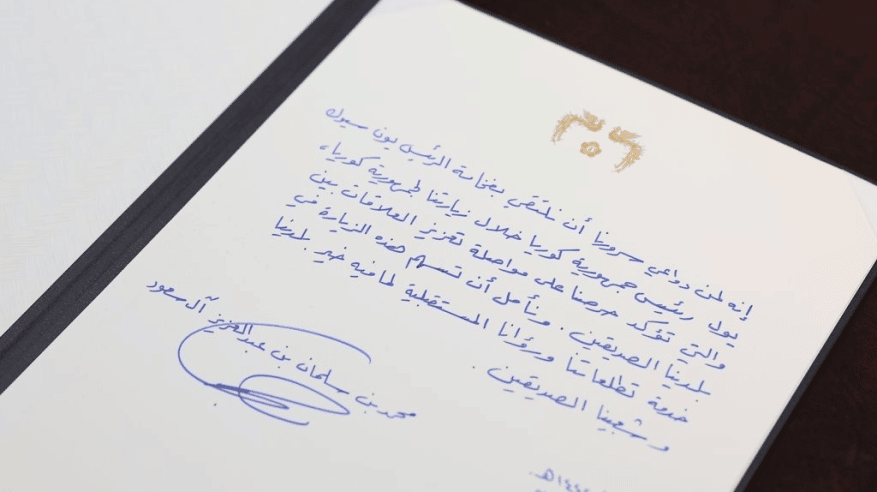 إنه لمن دواعي سرورنا أن نلتقي بفخامة الرئيس يون سيوك
يول رئيس جمهورية كوريا خلال زيارتنا لجمهورية كوريا،
والتي تؤكد حرصنا على مواصلة تعزيز العلاقات بين
بلدينا الصديقين. ونأمل أن تسهم هذه الزيارة في
خدمة تطلعاتنا ورؤانا المستقبلية لما فيه خير لبلدينا
وشعبينا الصديقين.
محمد بن سلمان بن عبدالعزيز آل سعود